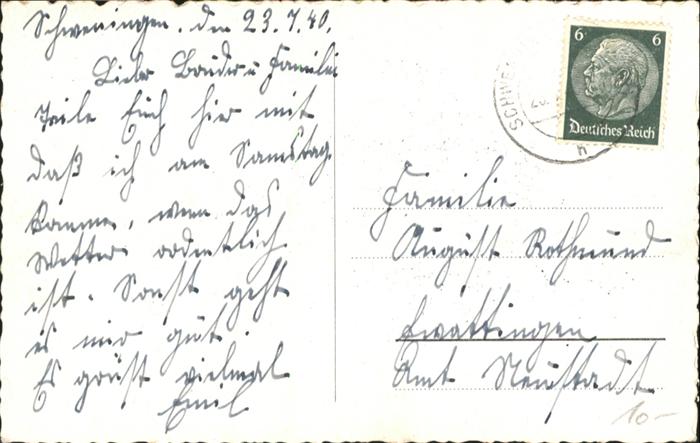 Schweningen, den 23.7.40.
Lieber Bruder u Familie
Teile Euch hier mit
daß ich am Samstag
komme, wenn das
Wetter ordentlich
ist. Sonst geht
es mir gut.
Es grüst vielmal
Emil
6 6
Deutsches Reich
SCHWE
Familie
August Rothmund
Ewattingen
Amt Neustadt
10-